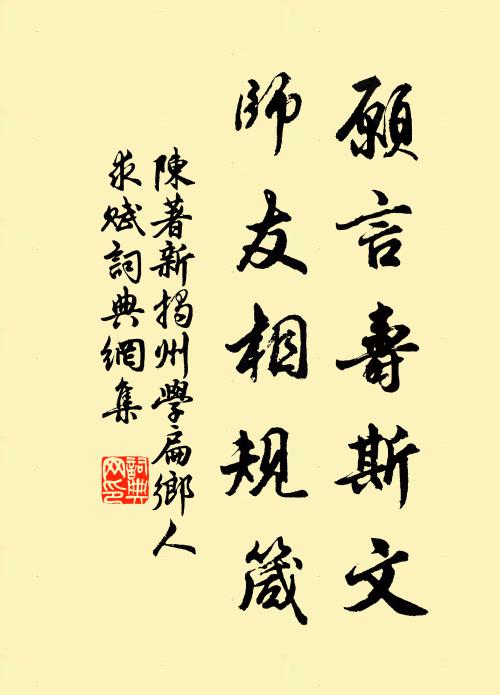 願言壽斯文
師友相規箴
陳著新揭州學扁鄉人
求赋詞典網集
詞典
网印